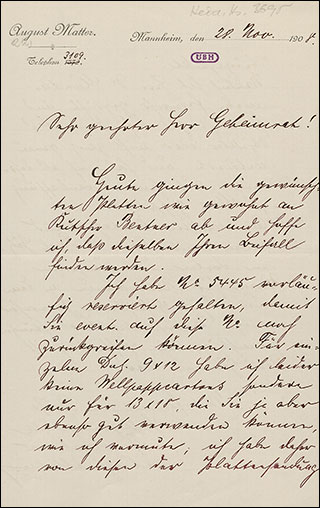 August Matter.
Telephon 3109.
Mannheim, den 28. Nov. 1908.
UBH
Sehr geehrter Herr Geheimrat!
Heute gingen die gewünsch-
ten Platten wie gewohnt an
ab und hoffe
ich, daß dieselben Ihren Beifall
finden werden.
Ich habe No 5445 vorläu-
fig reserviert gehalten, damit
Sie event. auf diese No noch
zurückgreifen können. Für ein-
zelne Dtz. 9x12 habe ich leider
keine Wellpappcartons sondern
nur für 13x18, die Sie ja aber
ebenso gut verwenden können,
wie ich vermute; ich habe daher
von diesen der Plattensendung